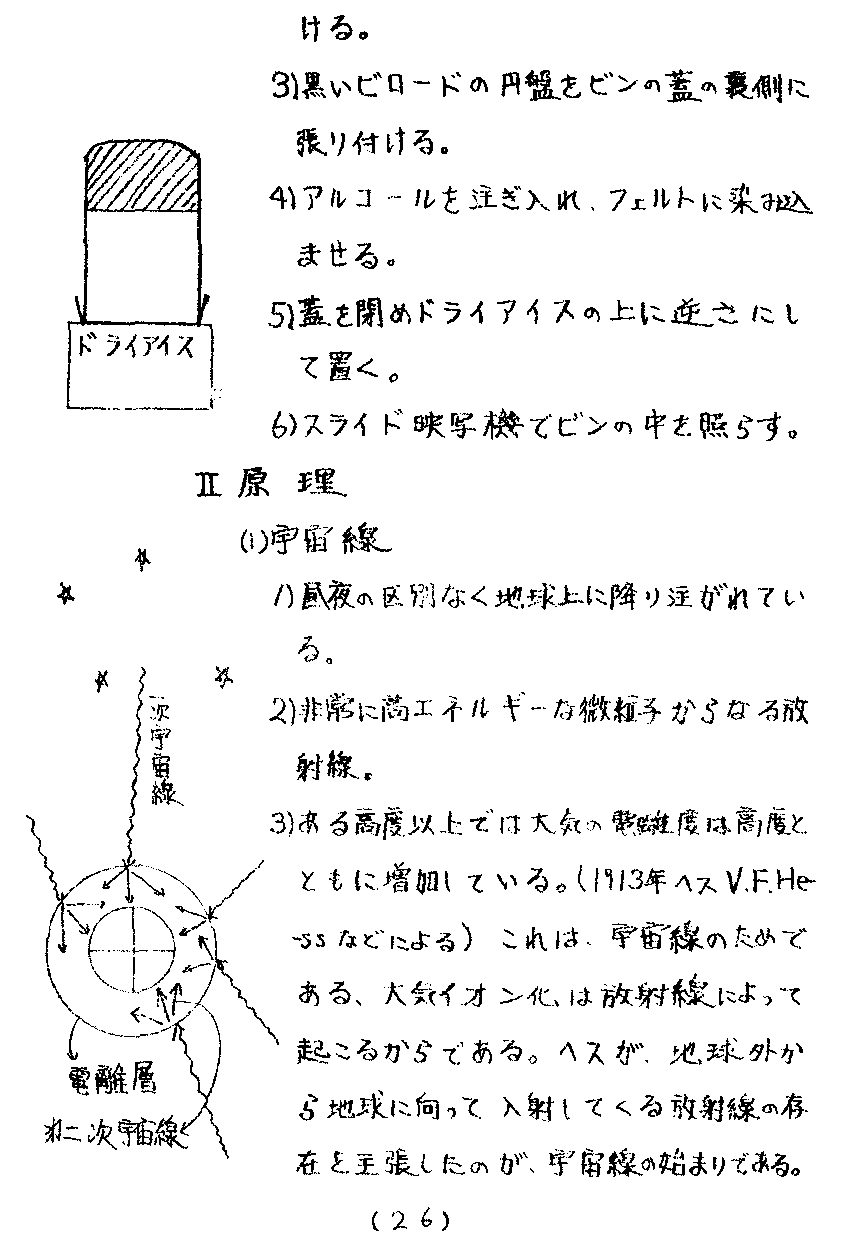 ける。
3)黒いビロードの円盤をビンの蓋の裏側に
張り付ける。
4)アルコールを注ぎ入れ、フェルトに染み込
ませる。
5)蓋を閉めドライアイスの上に逆さにし
て置く。
6)スライド映写機でビンの中を照らす。
ドライアイス
Ⅱ 原理
(1)宇宙線
1)昼夜の区別なく地球上に降り注がれてい
る。
2)非常に高エネルギーな微粒子からなる放
射線。
3)ある高度以上では大気の電離度は高度と
ともに増加している。(1913年ヘスV.F.He-
-ssなどによる) これは、宇宙線のためで
ある、大気イオン化、は放射線によって
起こるからである。ヘスが、地球外か
ら地球に向って入射してくる放射線の存
在を主張したのが、宇宙線の始まりである。
一次宇宙線
電離層
才二次宇宙線
(26)